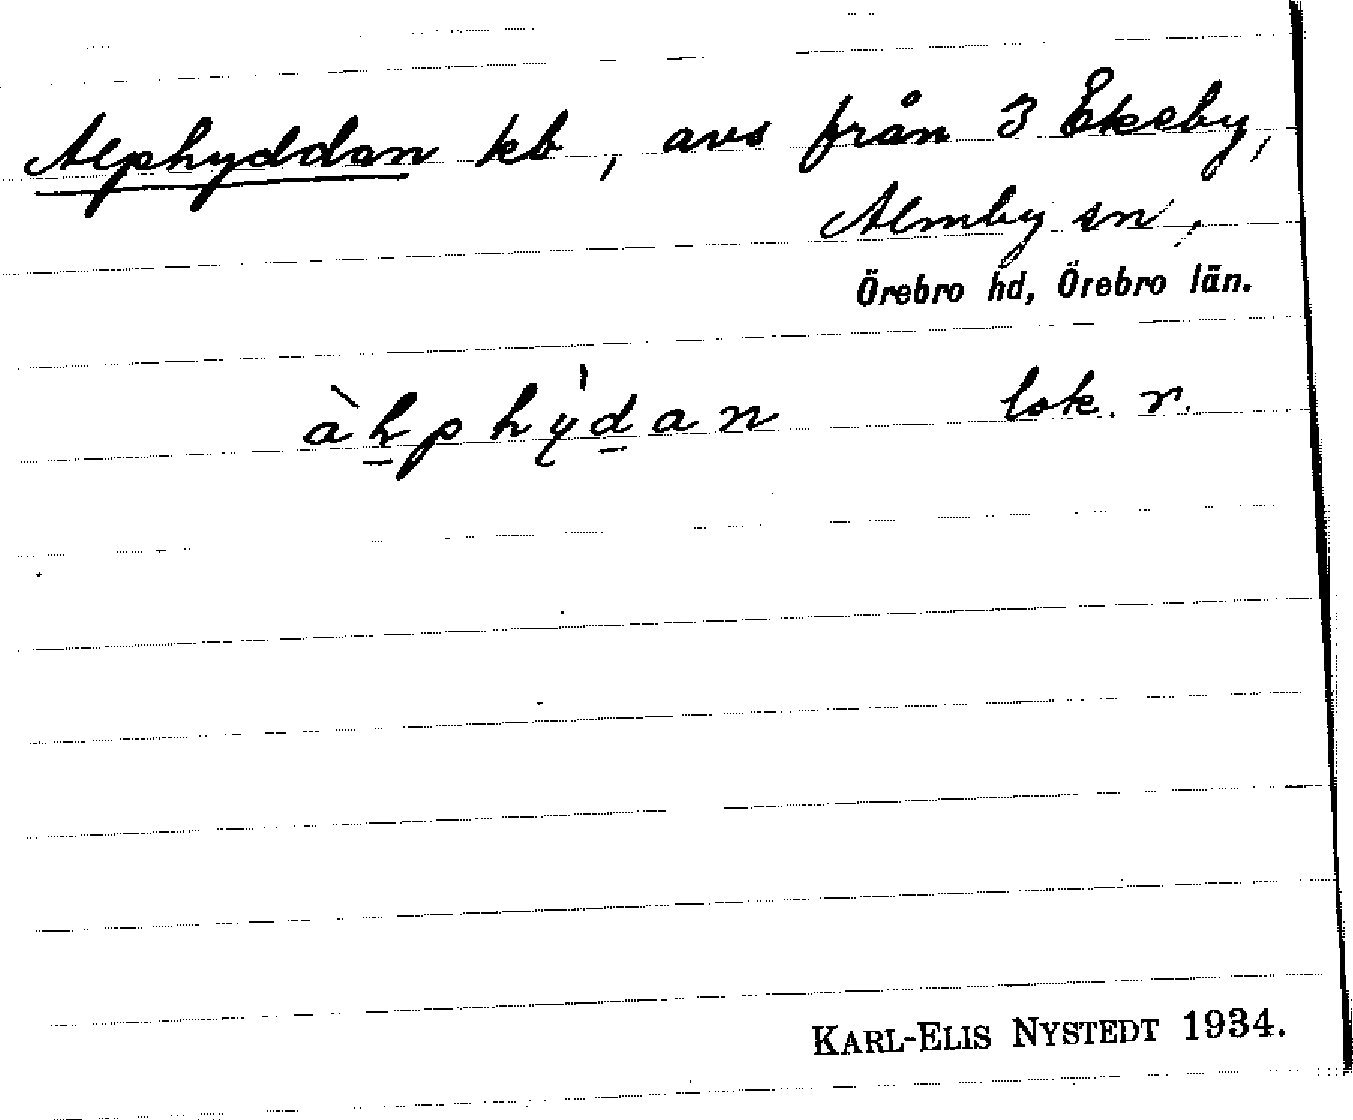 Alphyddan kb, avs från 3 Ekeby,
Almby sn,
Örebro hd, Örebro län.
àhphy̍dan lok. r.
KARL-ELIS NYSTEDT 1934.